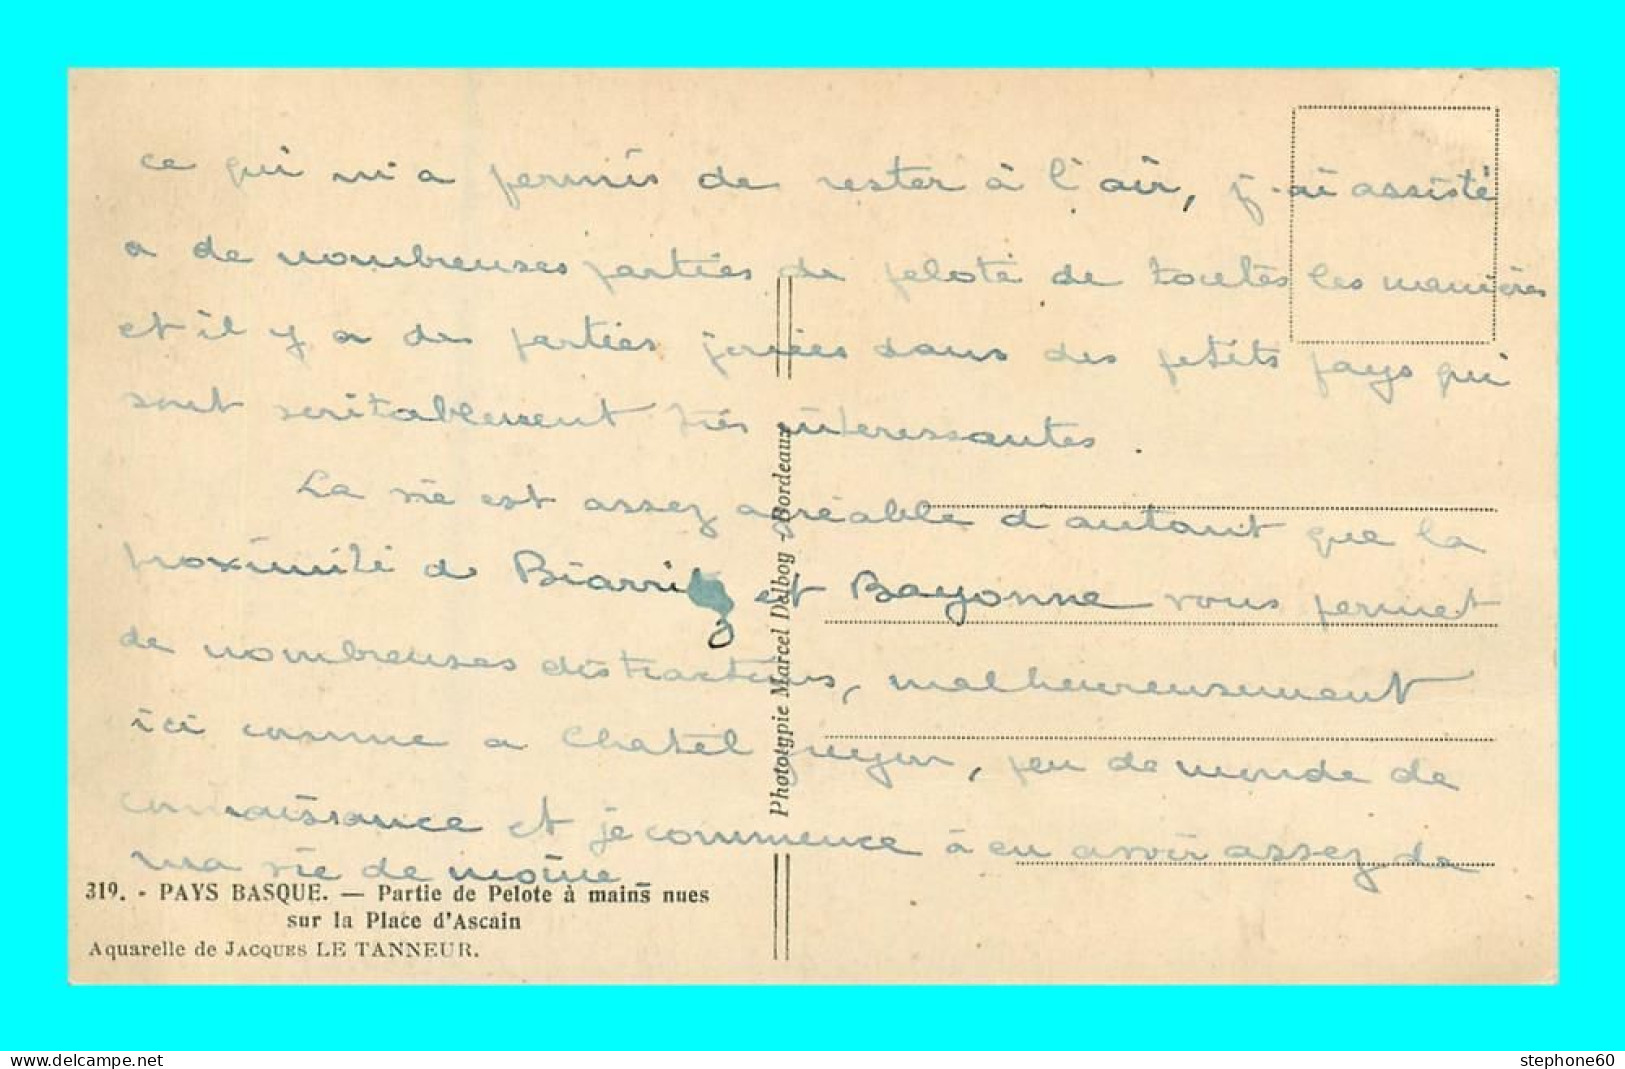 ce qui m'a permis de rester à l'air, j'ai assisté
a de nombreuses parties de pelote de toutes les manières
et il y a des parties jouées dans des petits pays qui
sont veritablement très interessantes.
La vie est assez agréable d'autant que la
proximité de Biarritz et Bayonne vous permet
de nombreuses distractions, malheureusement
ici comme a Chatel guyon, peu de monde de
connaissance et je commence à en avoir assez de
ma vie de moine
319. - PAYS BASQUE. — Partie de Pelote à mains nues
sur la Place d'Ascain
Aquarelle de JACQUES LE TANNEUR.
Phototypie Marcel Delboy - Bordeaux
www.delcampe.net
stephone60